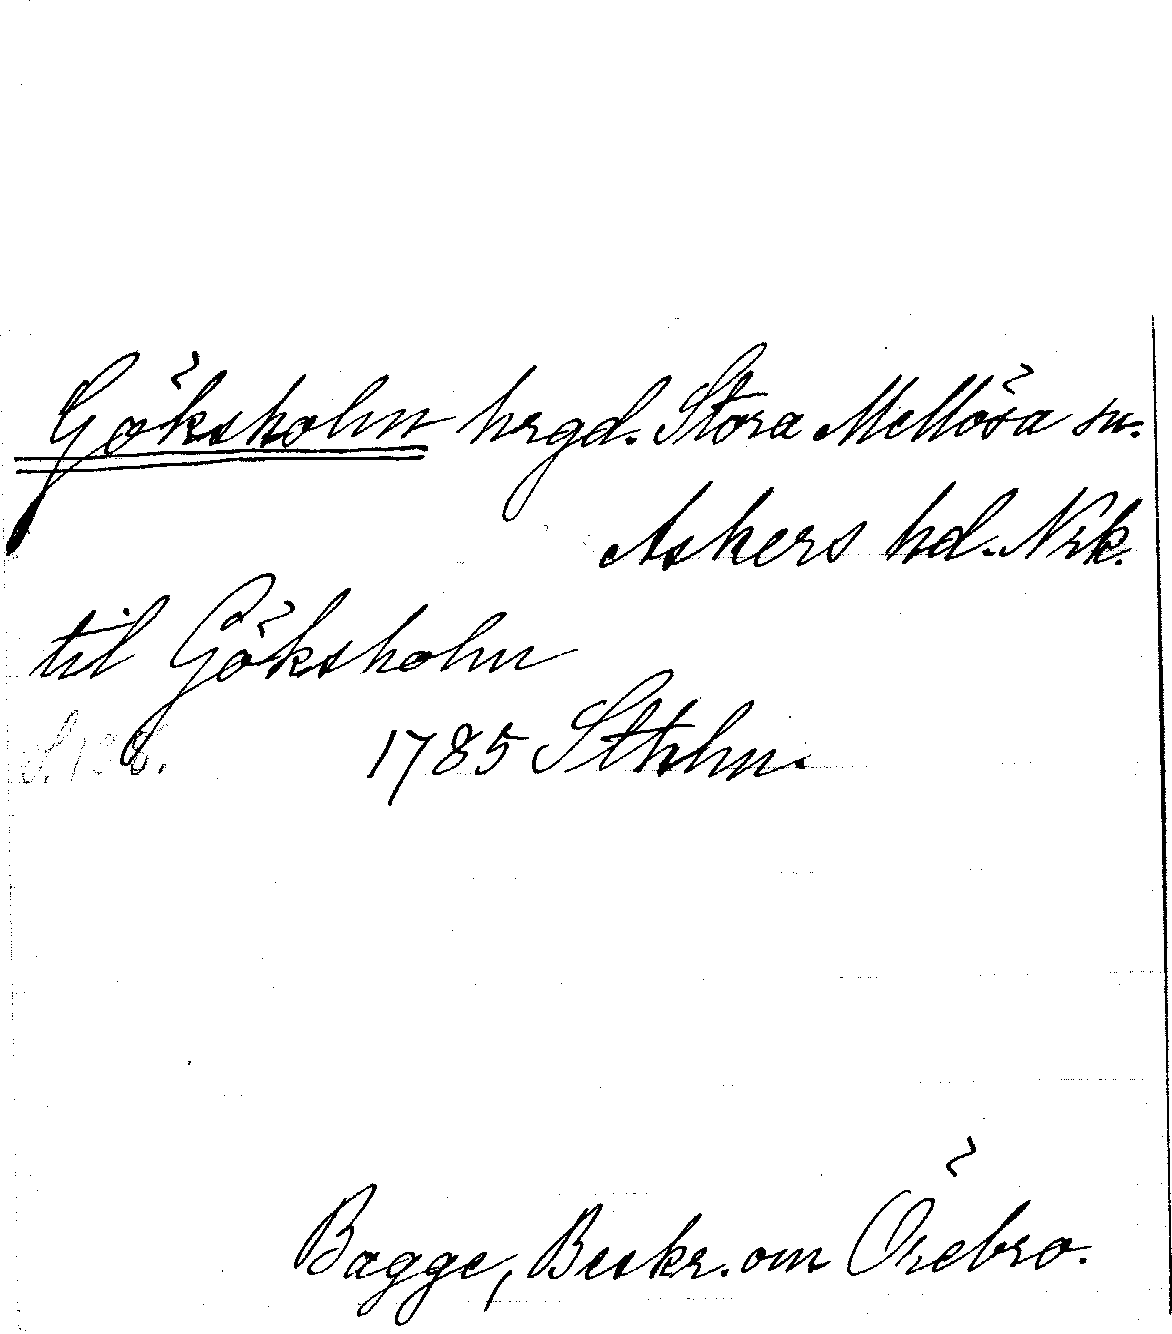 Göksholm hrgd. Stora Mellösa sn.
Askers hd. Nrk.
til Göksholm
S. 136. 1785 Sthlm.
Bagge, Beskr. om Örebro.